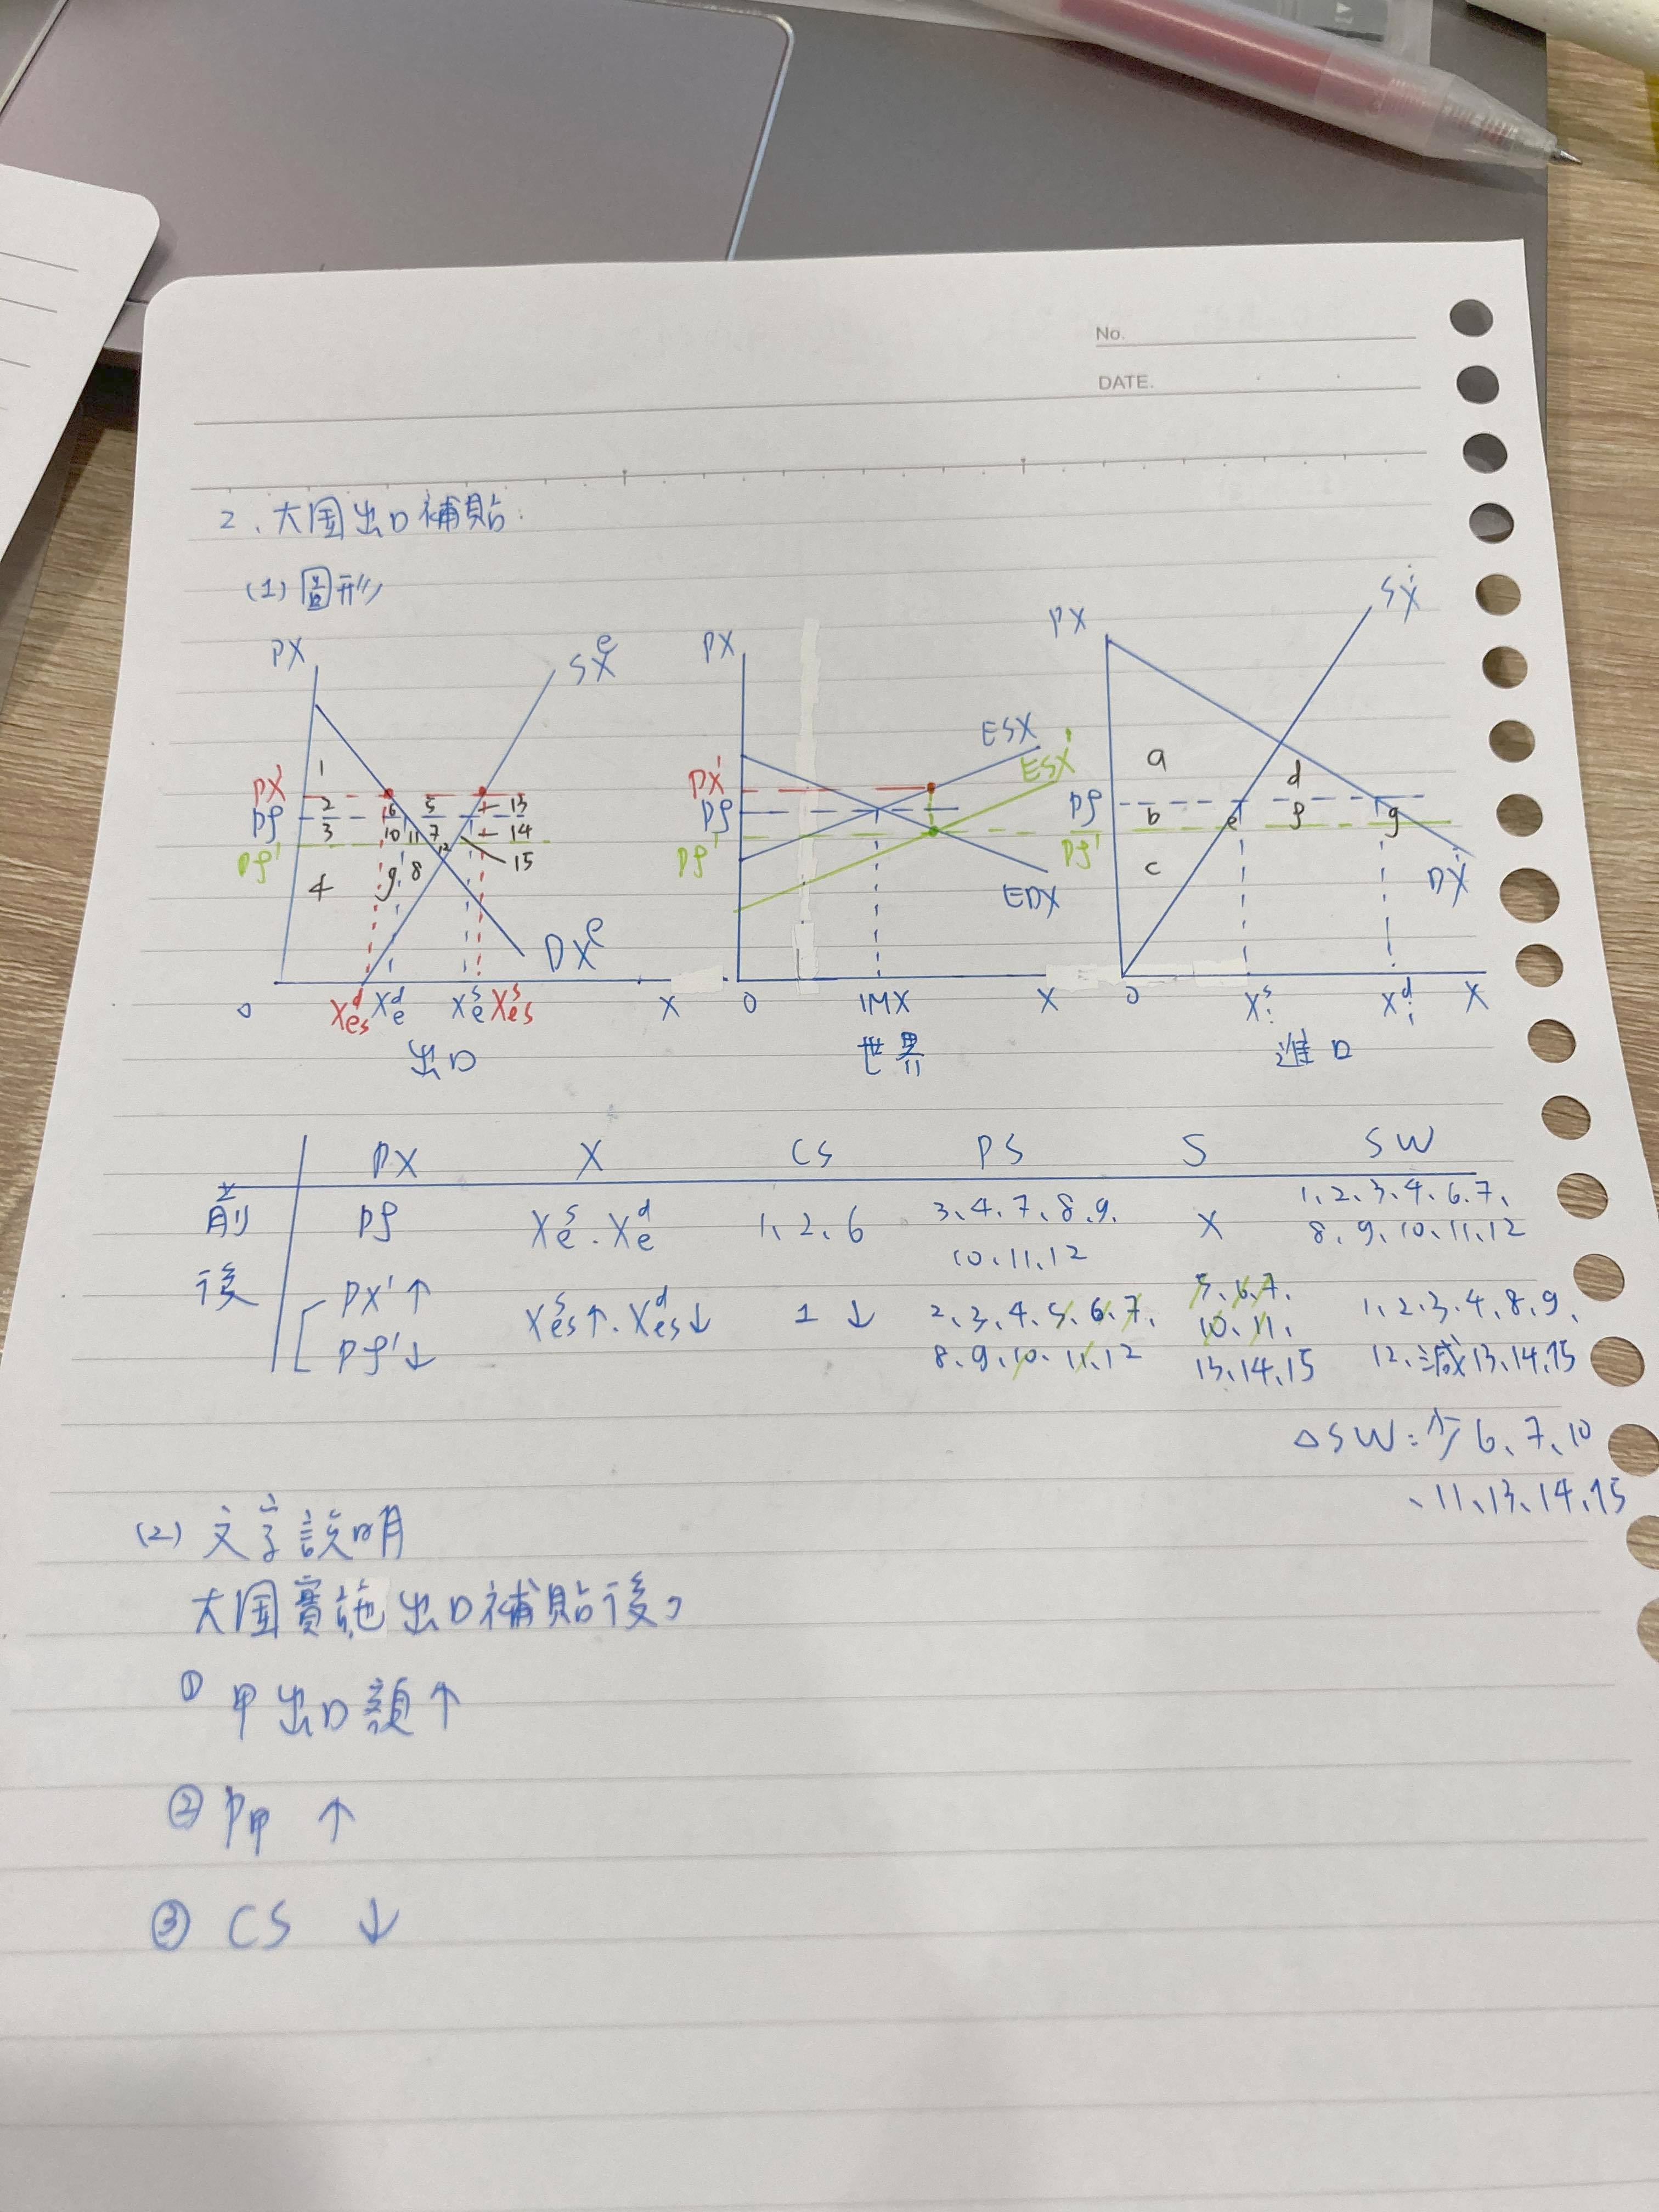 No.
DATE.
2、大国出口補貼：
(1) 圖形
PX
SX^e
PX'
Pf
Pf'
1
2
3
4
6
5
13
10
11
7
14
12
15
9
8
DX^e
0
X^d_es
X^d_e
X^s_e
X^s_es
X
出口
PX
ESX
ESX'
PX'
Pf
Pf'
EDX
0
IMX
X
世界
PX
SX^i
a
d
Pf
b
e
f
g
Pf'
c
DX^i
0
X^s_i
X^d_i
X
進口
PX X CS PS S SW
前 Pf X^s_e、X^d_e 1、2、6 3、4、7、8、9、 X 1、2、3、4、6、7、
10、11、12 8、9、10、11、12
後 PX'↑ X^s_es↑、X^d_es↓ 1 ↓ 2、3、4、5、6、7、 5、6、7、 1、2、3、4、8、9、
Pf'↓ 8、9、10、11、12 10、11、 12、減13、14、15
13、14、15
△SW：少6、7、10
、11、13、14、15
(2) 文字説明
大国實施出口補貼後，
① 甲出口額↑
② P甲 ↑
③ CS ↓